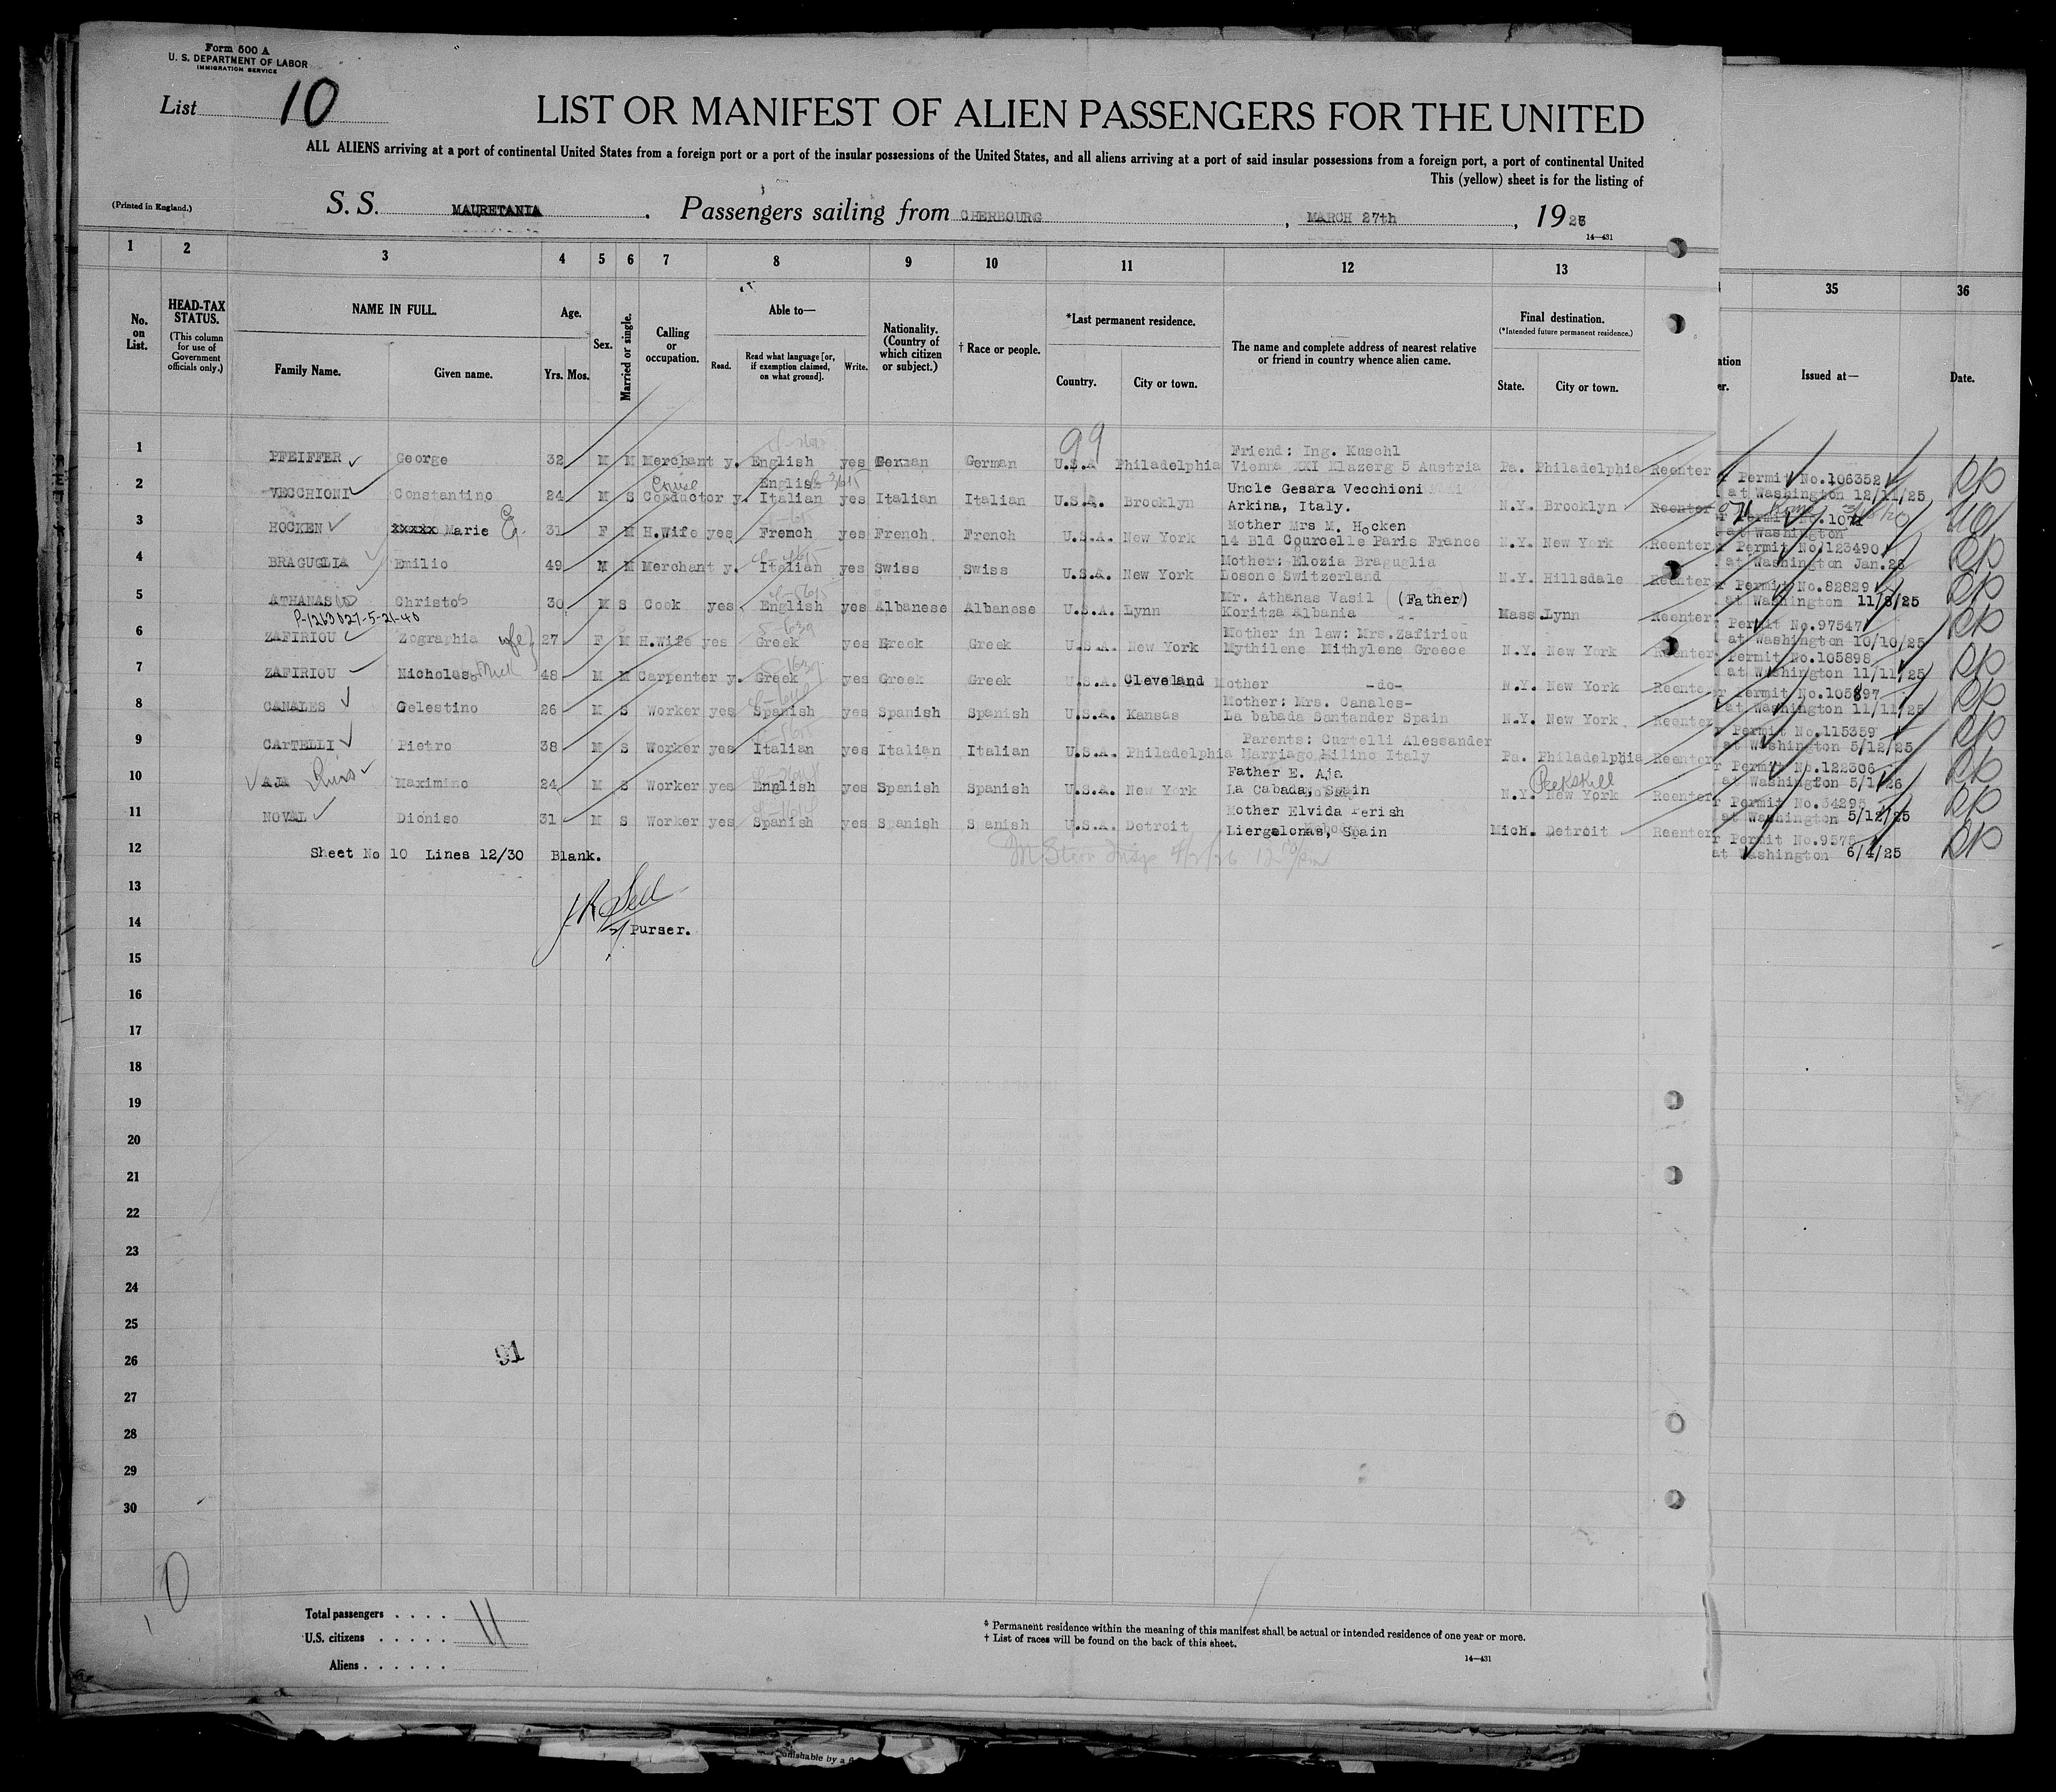 Form 500 A
U. S. DEPARTMENT OF LABOR
IMMIGRATION SERVICE
List 10
LIST OR MANIFEST OF ALIEN PASSENGERS FOR THE UNITED
ALL ALIENS arriving at a port of continental United States from a foreign port or a port of the insular possessions of the United States, and all aliens arriving at a port of said insular possessions from a foreign port, a port of continental United
This (yellow) sheet is for the listing of
(Printed in England.)
S. S. MAURETANIA . Passengers sailing from CHERBOURG , MARCH 27th , 1926
14—431
1 2 3 4 5 6 7 8 9 10 11 12 13 35 36
No. on List.
HEAD-TAX STATUS.
(This column for use of Government officials only.)
NAME IN FULL.
Family Name. Given name.
Age.
Yrs. Mos.
Sex.
Married or single.
Calling or occupation.
Able to—
Read. Read what language [or, if exemption claimed, on what ground]. Write.
Nationality. (Country of which citizen or subject.)
† Race or people.
*Last permanent residence.
Country. City or town.
The name and complete address of nearest relative or friend in country whence alien came.
Final destination.
(*Intended future permanent residence.)
State. City or town.
Issued at— Date.
99
1 PFEIFFER George 32 M M Merchant y. English yes German German U.S.A Philadelphia Friend: Ing. Kuschl
Vienna XXI Mlazerg 5 Austria Pa. Philadelphia Reenter Permit No.106352
at Washington 12/11/25
2 VECCHIONI Constantino 24 M S Conductor y. English Italian yes Italian Italian U.S.A. Brooklyn Uncle Gesara Vecchioni
Arkina, Italy. N.Y. Brooklyn Reenter
at Washington
3 HOCKEN xxxxx Marie E. 31 F M H.Wife yes French yes French French U.S.A. New York Mother Mrs M. Hocken
14 Bld Courcelle Paris France N.Y. New York Reenter Permit No.123490
at Washington Jan.26
4 BRAGUGLIA Emilio 49 M M Merchant y. Italian yes Swiss Swiss U.S.A. New York Mother: Elozia Braguglia
Losone Switzerland N.Y. Hillsdale Reenter Permit No.82829
at Washington 11/8/25
5 ATHANAS Christo 30 M S Cook yes English yes Albanese Albanese U.S.A. Lynn Mr. Athanas Vasil (Father)
Koritza Albania Mass. Lynn Reenter Permit No.97547
at Washington 10/10/25
P-1263027-5-21-40
6 ZAFIRIOU Zographia wfe) 27 F M H.Wife yes Greek yes Greek Greek U.S.A. New York Mother in law: Mrs.Zafiriou
Mythilene Mithylene Greece N.Y. New York Reenter Permit No.105898
at Washington 11/11/25
7 ZAFIRIOU Nicholas 48 M M Carpenter y. Greek yes Greek Greek U.S.A. Cleveland Mother -do- N.Y. New York Reenter Permit No.105897
at Washington 11/11/25
8 CANALES Celestino 26 M S Worker yes Spanish yes Spanish Spanish U.S.A. Kansas Mother: Mrs. Canales-
La babada Santander Spain N.Y. New York Reenter Permit No.115359
at Washington 5/12/25
9 CArTELLI Pietro 38 M S Worker yes Italian yes Italian Italian U.S.A. Philadelphia Parents: Curtelli Alessander
Marriago Milino Italy Pa. Philadelphia Reenter Permit No.122306
at Washington 5/1/26
10 AJA Maximino 24 M S Worker yes English yes Spanish Spanish U.S.A. New York Father E. Aja
La Cabada, Spain N.Y. New York Peekskill Reenter Permit No.34295
at Washington 5/12/25
11 NOVAL Dioniso 31 M S Worker yes Spanish yes Spanish S anish U.S.A. Detroit Mother Elvida Perish
Liergelonas, Spain Mich. Detroit Reenter Permit No.9575
at Washington 6/4/25
12 Sheet No 10 Lines 12/30 Blank.
13
14 Purser.
15
16
17
18
19
20
21
22
23
24
25
26 91
27
28
29
30
Total passengers . . . . 11
U.S. citizens . . . . .
Aliens . . . . . .
* Permanent residence within the meaning of this manifest shall be actual or intended residence of one year or more.
† List of races will be found on the back of this sheet.
14—431